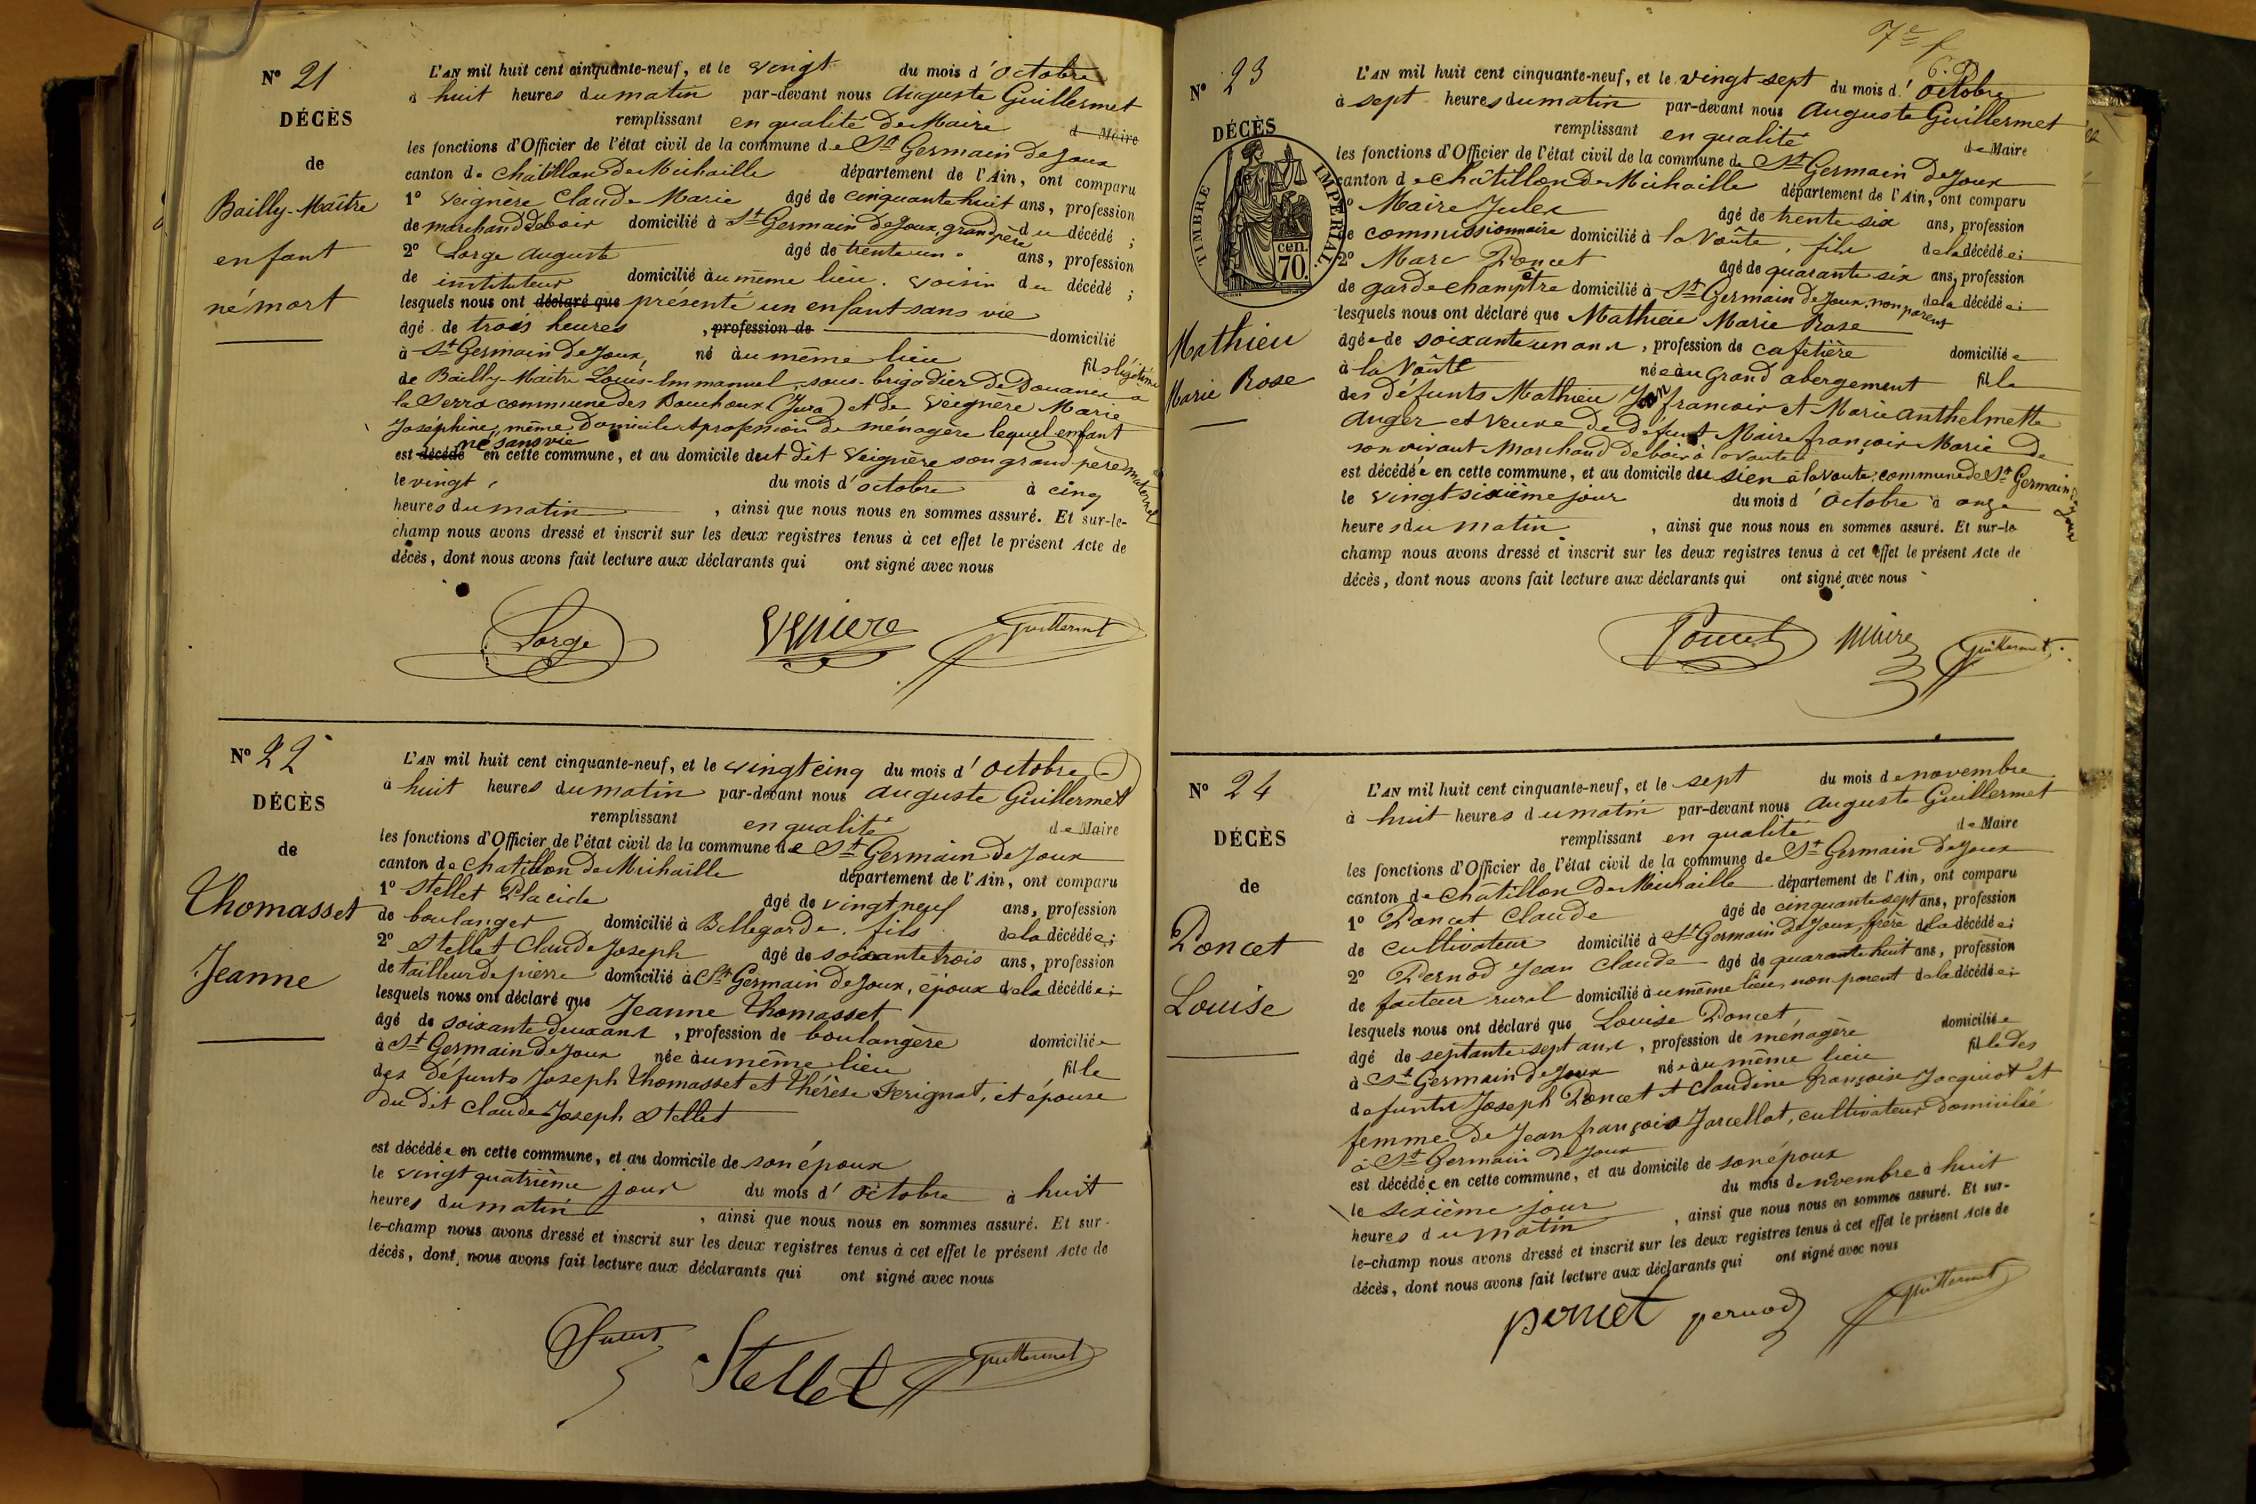 N° 21
DÉCÈS
de
Bailly-Maître
enfant
né mort
L'AN mil huit cent cinquante-neuf, et le vingt du mois d'octobre
à huit heures du matin par-devant nous Auguste Guillermet
remplissant en qualité de Maire d Maire
les fonctions d'Officier de l'état civil de la commune de St Germain de Joux
canton de Châtillon de Michaille département de l'Ain, ont comparu
1° Veignère Claude Marie âgé de cinquante huit ans, profession
de marchand de bois domicilié à St Germain de Joux, grand père du décédé ;
2° Lorge Auguste âgé de trente un ans, profession
de instituteur domicilié au même lieu. voisin du décédé ;
lesquels nous ont déclaré que présenté un enfant sans vie
âgé de trois heures , profession de domicilié
à St Germain de Joux, né au même lieu fils légitime
de Bailly-Maître Louis-Emmanuel, sous-brigadier de Douanes à
la Serra commune des Bouchoux (Jura) et de Veignère Marie
Joséphine, même domicile et profession de ménagère lequel enfant
né sans vie
est décédé en cette commune, et au domicile du dit Veignère son grand père maternel
le vingt du mois d'octobre à cinq
heures du matin , ainsi que nous nous en sommes assuré. Et sur-le-
champ nous avons dressé et inscrit sur les deux registres tenus à cet effet le présent Acte de
décès, dont nous avons fait lecture aux déclarants qui ont signé avec nous
Lorge Veniere Guillermet
N° 22
DÉCÈS
de
Thomasset
Jeanne
L'AN mil huit cent cinquante-neuf, et le vingt cinq du mois d'octobre
à huit heures du matin par-devant nous Auguste Guillermet
remplissant en qualité de Maire
les fonctions d'Officier de l'état civil de la commune de St Germain de Joux
canton de Chatillon de Michaille département de l'Ain, ont comparu
1° Stellet Placide âgé de vingt neuf ans, profession
de boulanger domicilié à Bellegarde. fils de la décédée ;
2° Stellet Claude Joseph âgé de soixante trois ans, profession
de tailleur de pierre domicilié à St Germain de Joux, époux de la décédée ;
lesquels nous ont déclaré que Jeanne Thomasset
âgé de soixante deux ans , profession de boulangère domiciliée
à St Germain de Joux née au même lieu fille
des défunts Joseph Thomasset et Thérèse Perignat, et épouse
du dit Claude Joseph Stellet
est décédée en cette commune, et au domicile de son époux
le vingt quatrième jour du mois d'octobre à huit
heures du matin , ainsi que nous nous en sommes assuré. Et sur-
le-champ nous avons dressé et inscrit sur les deux registres tenus à cet effet le présent Acte de
décès, dont nous avons fait lecture aux déclarants qui ont signé avec nous
Stellet Guillermet
7e f
N° 23
DÉCÈS
TIMBRE IMPERIAL
cen.
70.
Mathieu
Marie Rose
L'AN mil huit cent cinquante-neuf, et le vingt sept du mois d'octobre
à sept heures du matin par-devant nous Auguste Guillermet
remplissant en qualité de Maire
les fonctions d'Officier de l'état civil de la commune de St Germain de Joux
canton de Châtillon de Michaille département de l'Ain, ont comparu
1° Maire Jules âgé de trente six ans, profession
de commissionnaire domicilié à la Voûte, fils de la décédée ;
2° Marc Poncet âgé de quarante six ans, profession
de garde champêtre domicilié à St Germain de Joux, non parent de la décédée ;
lesquels nous ont déclaré que Mathieu Marie Rose
âgée de soixante un ans , profession de cafetière domiciliée
à la Voûte née au Grand abergement fille
des défunts Mathieu Jean françois et Marie Anthelmette
Auger et veuve de défunt Maire françois Marie de
son vivant marchand de bois à la voute
est décédée en cette commune, et au domicile du sien à la voute, commune de St Germain de Joux
le vingt sixième jour du mois d'octobre à onze
heures du matin , ainsi que nous nous en sommes assuré. Et sur-le
champ nous avons dressé et inscrit sur les deux registres tenus à cet effet le présent Acte de
décès, dont nous avons fait lecture aux déclarants qui ont signé avec nous
Poncet Maire Guillermet
N° 24
DÉCÈS
de
Poncet
Louise
L'AN mil huit cent cinquante-neuf, et le sept du mois de novembre
à huit heures du matin par-devant nous Auguste Guillermet
remplissant en qualité de Maire
les fonctions d'Officier de l'état civil de la commune de St Germain de Joux
canton de Châtillon de Michaille département de l'Ain, ont comparu
1° Poncet Claude âgé de cinquante sept ans, profession
de cultivateur domicilié à St Germain de Joux, frère de la décédée ;
2° Pernod Jean Claude âgé de quarante huit ans, profession
de facteur rural domicilié au même lieu, non parent de la décédée ;
lesquels nous ont déclaré que Louise Poncet
âgé de septante sept ans , profession de ménagère domiciliée
à St Germain de Joux née au même lieu fille des
defunts Joseph Poncet et Claudine françoise Jacquinot et
femme de Jean françois Jarcellat, cultivateur domicilié
à St Germain de Joux
est décédée en cette commune, et au domicile de son époux
le sixième jour du mois de novembre à huit
heures du matin , ainsi que nous nous en sommes assuré. Et sur-
le-champ nous avons dressé et inscrit sur les deux registres tenus à cet effet le présent Acte de
décès, dont nous avons fait lecture aux déclarants qui ont signé avec nous
poncet pernod Guillermet